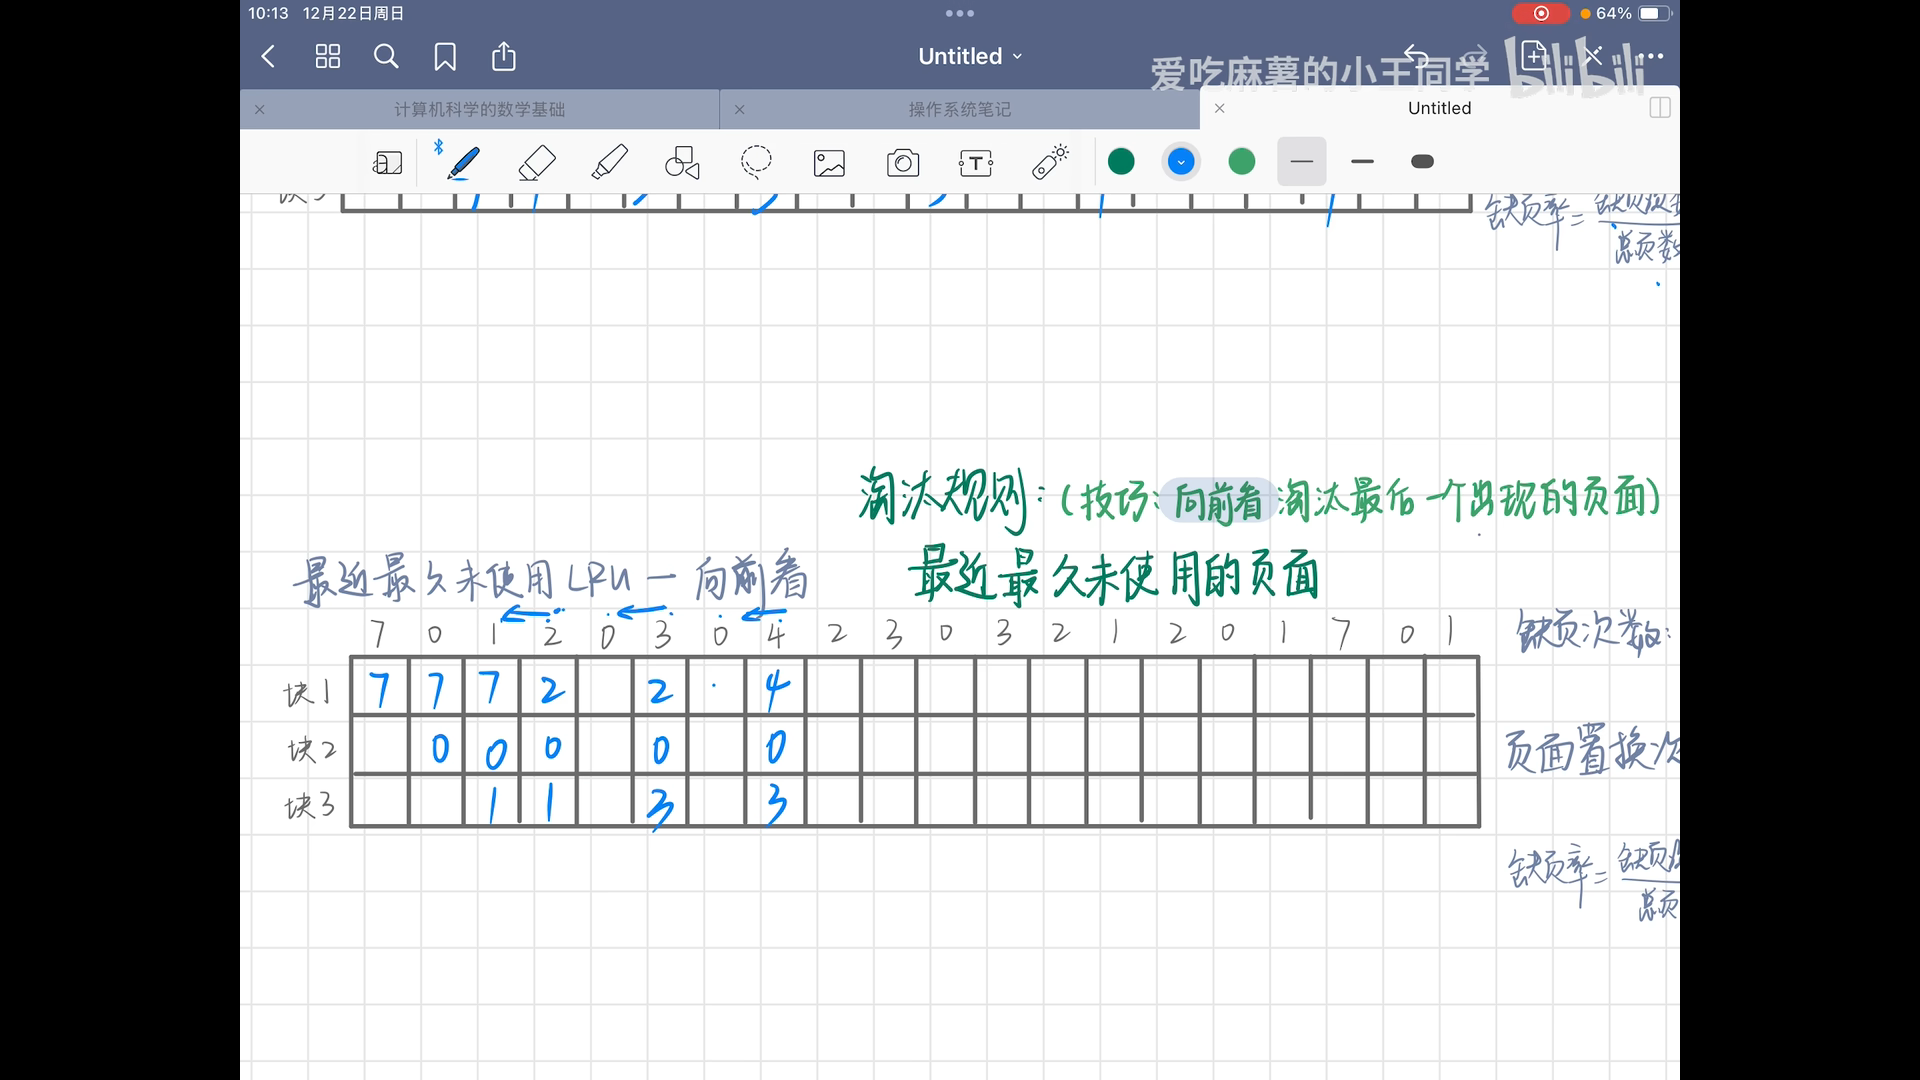 10:13 12月22日周日
64%
Untitled
爱吃麻薯的小王同学 bilibili
计算机科学的数学基础
操作系统笔记
Untitled
缺页率=
总页数
淘汰规则:(技巧:向前看 淘汰最后一个出现的页面)
最近最久未使用 LRU — 向前看
最近最久未使用的页面
7 0 1 2 0 3 0 4 2 3 0 3 2 1 2 0 1 7 0 1
缺页次数:
块1 7 7 7 2 2 4
块2 0 0 0 0 0
页面置换次
块3 1 1 3 3
缺页率= 缺页
总页